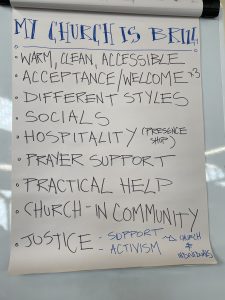 MY CHURCH IS BRILL!
• WARM, CLEAN, ACCESSIBLE
• ACCEPTANCE/WELCOME x3
• DIFFERENT STYLES
• SOCIALS
• HOSPITALITY (PRESENCE SHIP)
• PRAYER SUPPORT
• PRACTICAL HELP
• CHURCH-IN COMMUNITY
• JUSTICE - SUPPORT → CHURCH
- ACTIVISM + INDIVIDUALS